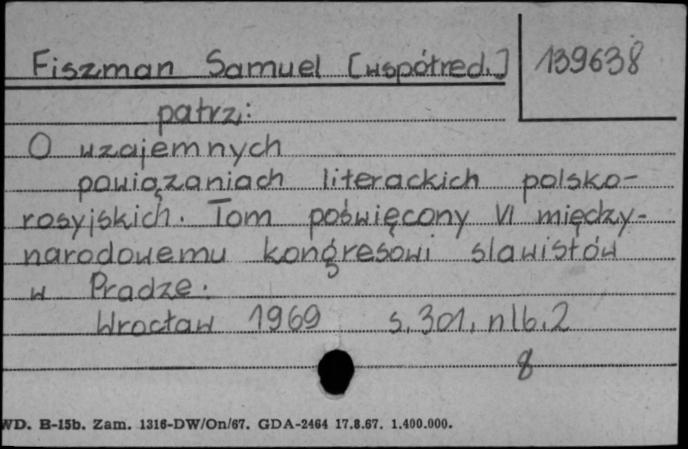 Fiszman Samuel [współred.] 139638
patrz:
O wzajemnych
powiązaniach literackich polsko-
rosyjskich. Tom poświęcony VI między-
narodowemu kongresowi slawistów
w Pradze.
Wrocław 1969 s. 301, nlb. 2
8
WD. B-15b. Zam. 1316-DW/On/67. GDA-2464 17.8.67. 1.400.000.